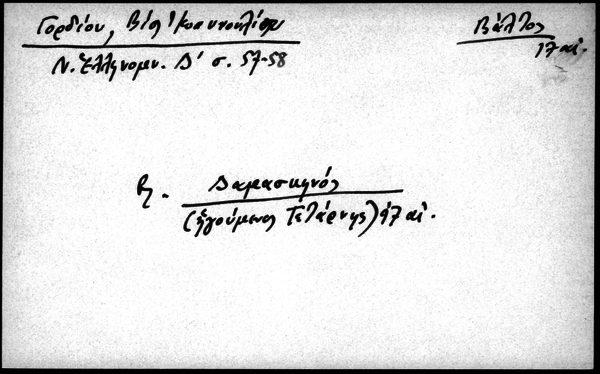 Γορδίου, Βίος Ἰωαννουλίου
Ν. Ἑλληνομν. Δ' σ. 57-58
Βάλτος
17 αἰ.
βλ. Δαμασκηνός
(ἡγούμενος Τετάρνης) 17 αἰ.